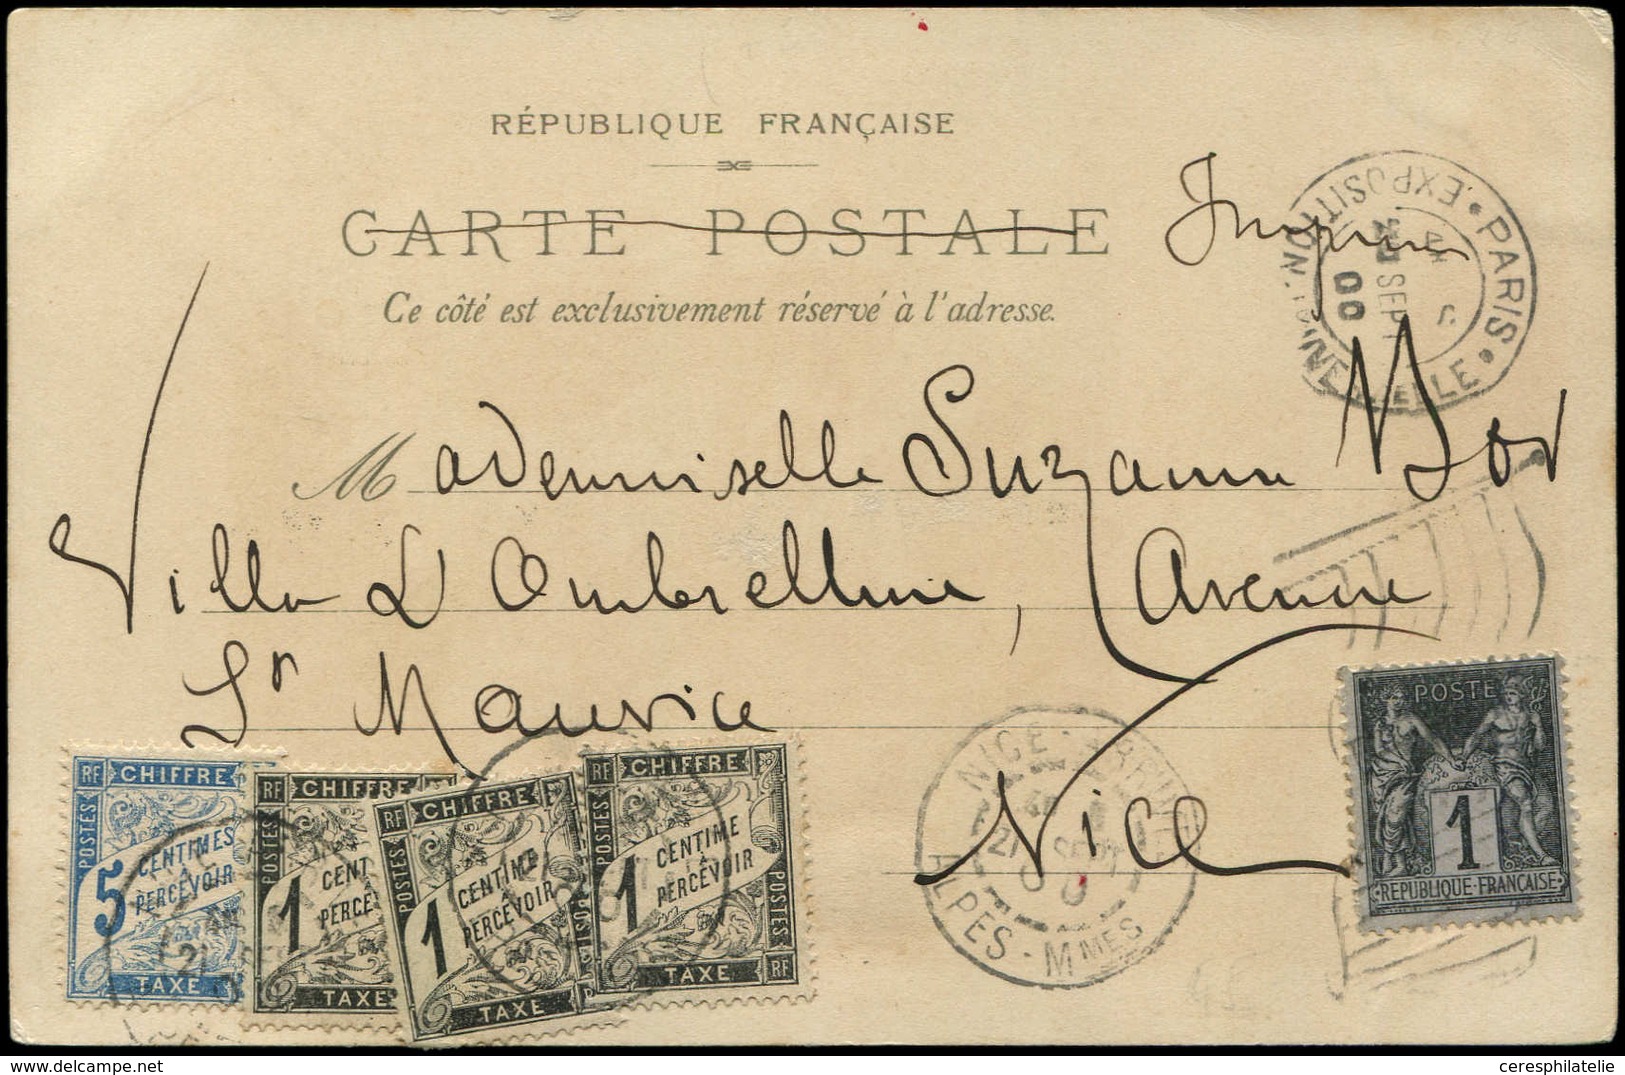 RÉPUBLIQUE FRANÇAISE
CARTE POSTALE
Ce côté est exclusivement réservé à l'adresse.
PARIS
EXPOSITION
SEPT
00
Mademoiselle Suzanne
Villa L'Ombrelline, Avenue
St Maurice
Nice
NICE
ALPES-MMES
21 SEPT
POSTE
1
REPUBLIQUE-FRANÇAISE
RF CHIFFRE
POSTES
5 CENTIMES
À
PERCEVOIR
TAXE
RF CHIFFRE
1 CENT
PERCE
TAXE
CHIFFRE
POSTES
1 CENTIME
À
PERCEVOIR
TAXE
RF CHIFFRE
POSTES
1 CENTIME
À
PERCEVOIR
POSTES
TAXE RF
ceresphilatelie